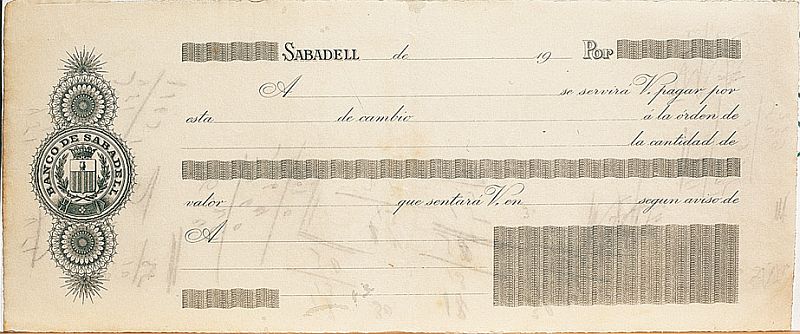 SABADELL de 19 Por
A se servirá V. pagar por
esta de cambio á la órden de
la cantidad de
valor que sentará V. en segun aviso de
A
BANCO DE SABADELL